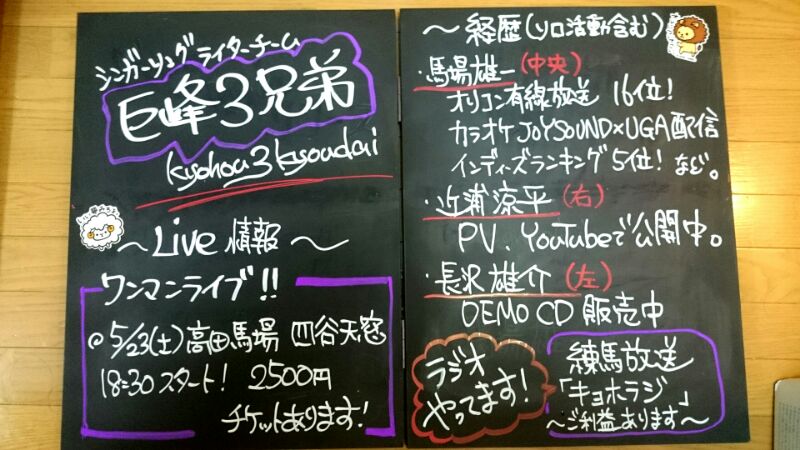 シンガーソングライターチーム
巨峰3兄弟
kyohou3kyoudai
〜Live 情報〜
ワンマンライブ!!
@5/23(土)高田馬場 四谷天窓
18:30スタート! 2500円
チケットあります!
〜経歴(ソロ活動含む)〜
・馬場雄一(中央)
オリコン有線放送 16位!
カラオケJOYSOUND×UGA配信
インディーズランキング5位!など。
・近浦涼平(右)
PV、YouTubeで公開中。
・長沢雄介(左)
DEMO CD 販売中
ラジオ
やってます!
練馬放送
「キョホラジ」
〜ご利益あります〜